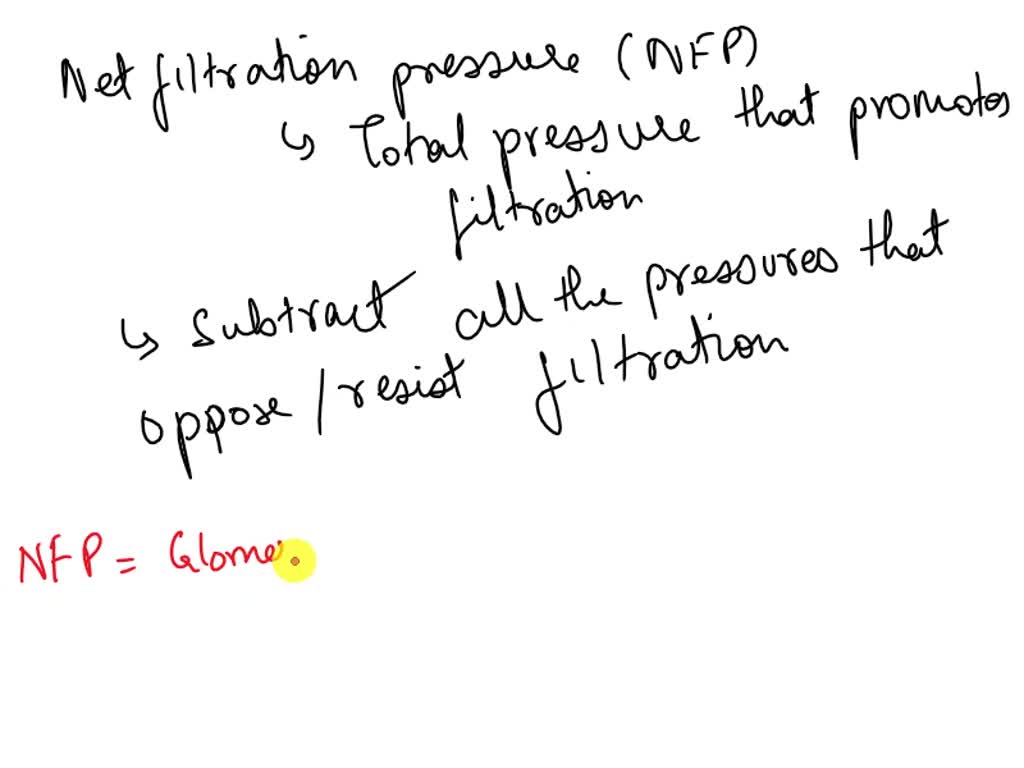 Net filtration pressure (NFP)
↳ Total pressure that promotes
filtration
↳ Subtract all the pressures that
oppose / resist filtration
NFP = Glome